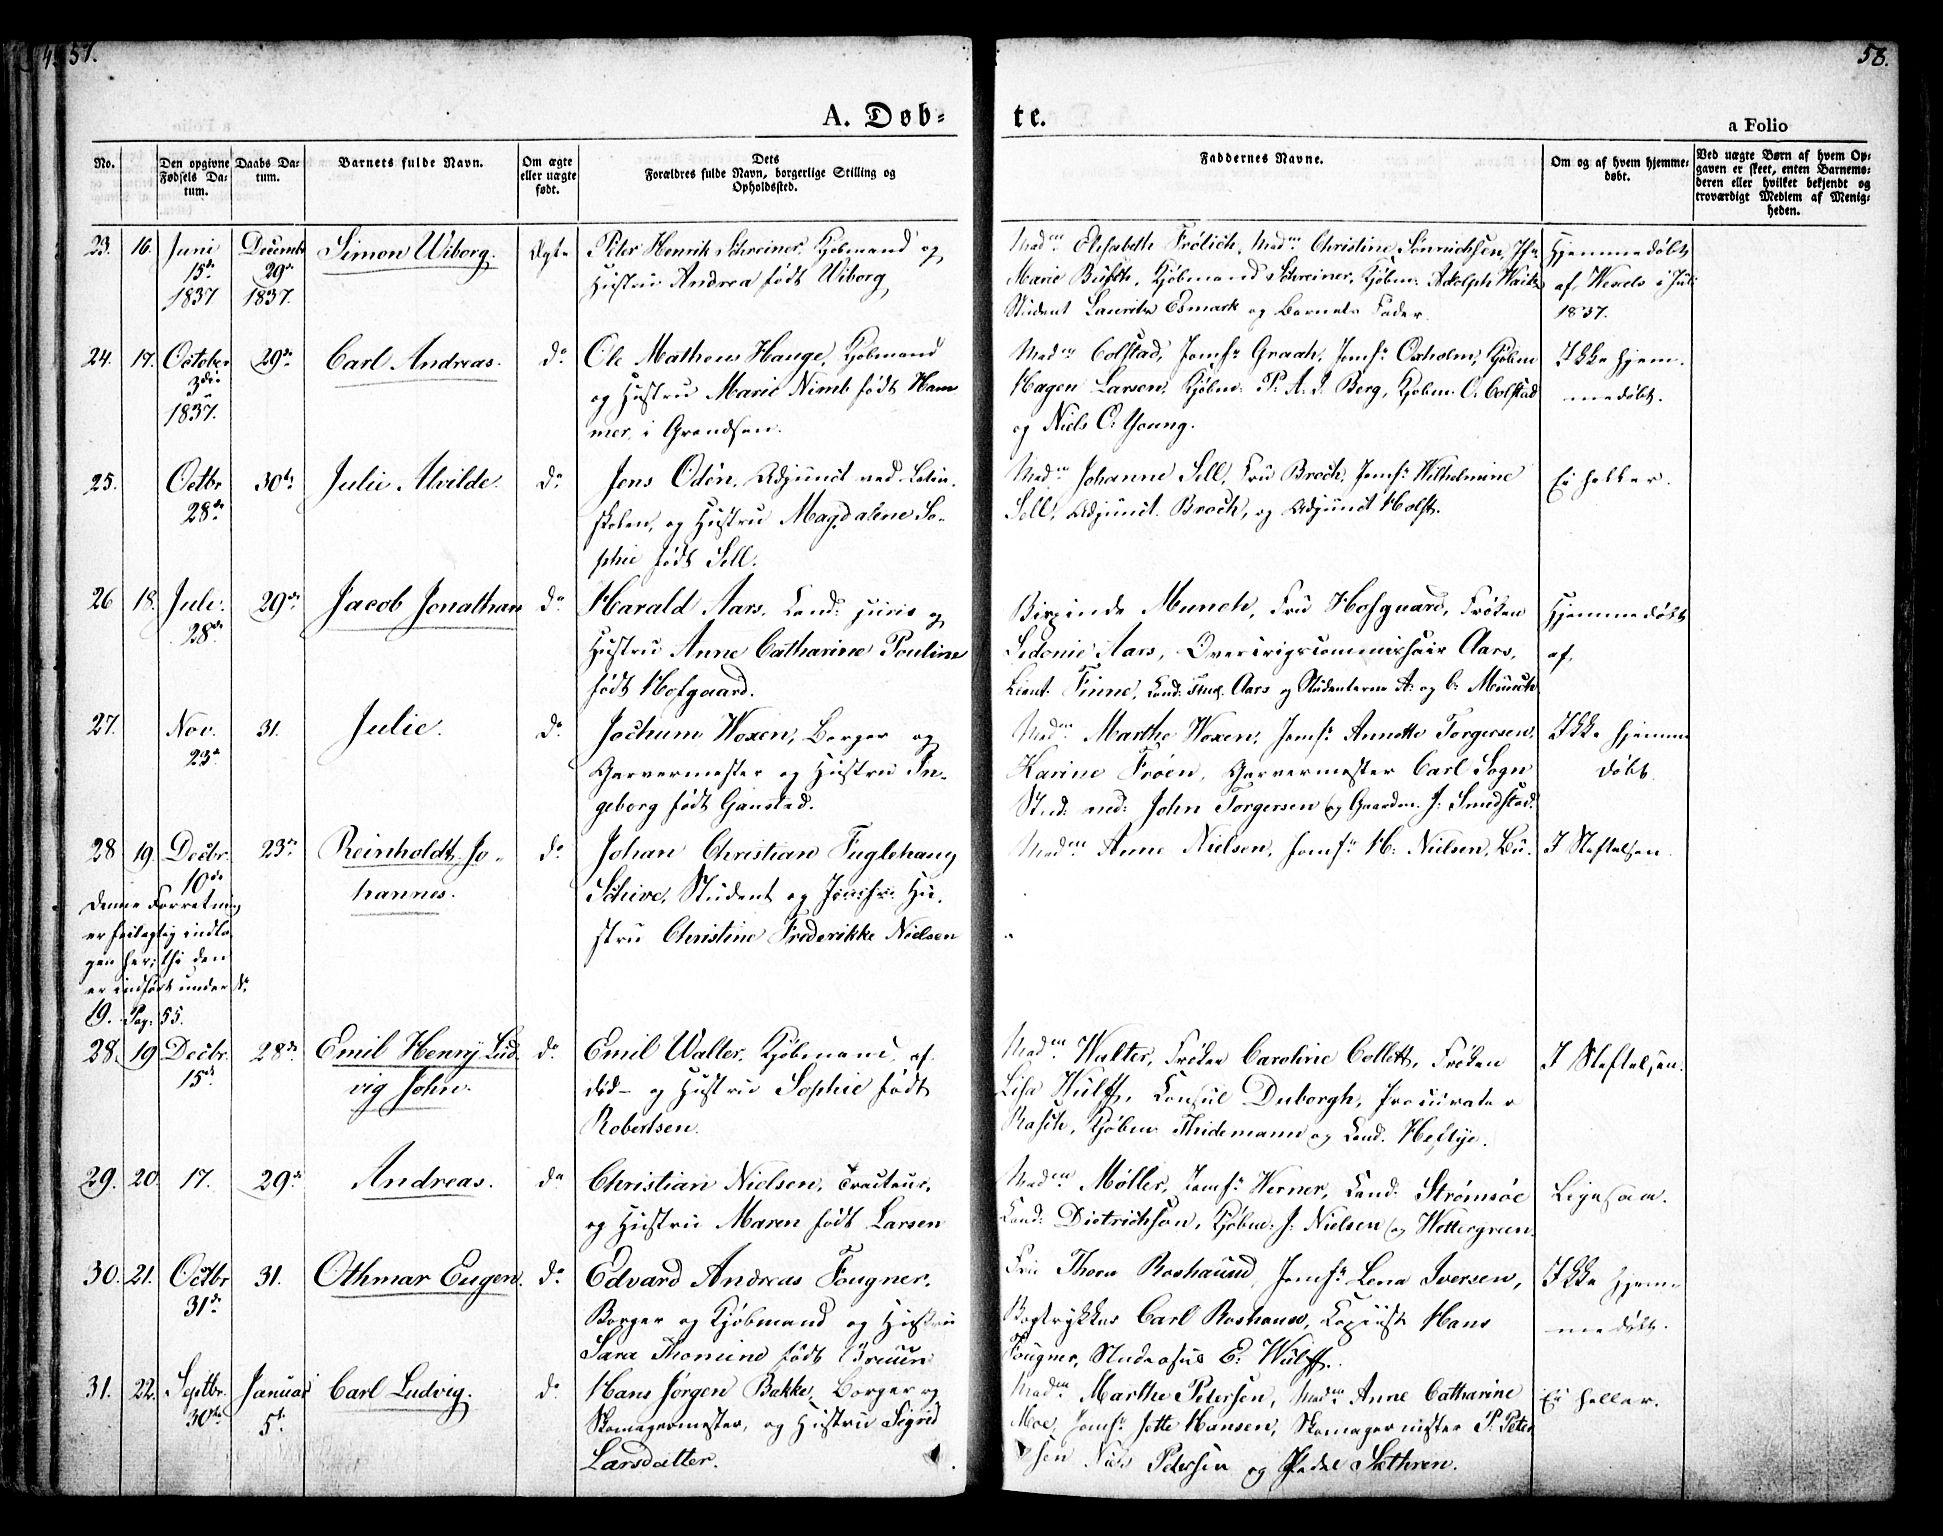 57.
58.
A. Døb-
te.
a Folio
No.
Den opgivne Fødsels Datum.
Daabs Datum.
Barnets fulde Navn.
Om ægte eller uægte født.
Dets
Forældres fulde Navn, borgerlige Stilling og
Opholdssted.
Faddernes Navne.
Om og af hvem hjemmedøbt.
Ved uægte Børn af hvem Opgaven er skeet, enten Barnemoderen eller hvilket bekjendt og troværdigt Medlem af Menigheden.
23. 16. Juni 15de 1837 Decembr 29de 1837. Simon Wiborg. Ægte
Peter Henrik Schreiner, Kjøbmand og
Hustru Andrea født Wiborg
Madm Elisabeth Frölich, Madm Christine Sönnichsen, Jfr
Marie Busch, Kjøbmand Schreiner, Kjøbm. Adolph
Student Lauritz Esmark og Barnets Fader.
Hjemmedøbt
af Wexels i Juli
1837.
24. 17. October 3die 1837. 29de Carl Andreas. do
Ole Matheus Hauge, Kjøbmand
og Hustru Marie Nimb født Ham
mer, i Grændsen.
Madm Colstad, Jomfr Graah, Jomfr Oxholm, Kjøbm
Hagen Larsen, Kjøbm. P. A. J. Berg, Kjøbm. O. Colstad
og Niels O. Young.
Ikke hjem-
medøbt.
25. Octbr 28de 30te Julie Alvilde. do
Jens Odén, Adjunct ved Latin-
skolen, og Hustru Magdalene So-
phie født Sell.
Madm Johanne Sell, Fru Broch, Jomfr Wilhelmine
Sell, Adjunct Broch, og Adjunct Holst.
Ei heller.
26 18. Juli. 28de 29de Jacob Jonathan do
Harald Aars, Cand: juris og
Hustru Anne Catharine Pouline
født Hofgaard.
Munch, Fru Hofgaard, Frøken
Sidonie Aars, Overkrigscommissair Aars,
Lieut. Finne, Cand: Aars og Studenterne A: og C: Munch
Hjemmedøbt
af,
27. Nov. 23de 31. Julie. do
Jochum Woxen, Borger og
Garvermester og Hustru In-
geborg født Ganstad.
Madm Marthe Woxen, Jomfr Annette Torgersen,
Karine Frøen, Garvermester Carl Sogn
Stud: med: John Torgersen og Gaardm. J: Smedstad.
Ikke hjemme
døbt.
28 19. Decbr. 10de 23de Reinholdt Jo-
hannes. do
Johan Christian Fuglehaug
Schive, Student og Hu-
stru Christine Frederikke Nielsen
Madm Anne Nielsen, Jomfr H: Nielsen,
I Stiftelsen.
Denne Forretning
er feilagtig indta-
gen her; thi den
er indført under No
19. Pag: 55.
28. 19. Decbr. 15de 28de Emil Henry Lud-
vig John. do
Emil Walter, Kjøbmand, af-
død- og Hustrue Sophie født
Robertsen.
Madm Walter, Frøken Caroline Collett, Frøken
Lise Wulff, Consul Duborgh, Procurator
Rasch, Kjøbm: Thidemann og Cand. Heftye.
I Stiftelsen.
29. 20. 17. 29de Andreas. do
Christian Nielsen, Tracteur,
og Hustru Maren født Larsen
Madm Møller, Jomfr Werner, Cand: Strømsöe
Cand: Dietrichson, Kjøbm: J: Nielsen og Wettergreen.
Ligesaa.
30. 21. Octbr 31de 31. Othmar Eugen. do
Edvard Andreas Fougner,
Borger og Kjøbmand og Hustru
Sara Thomine født Bruun
Fru Thora Roshauw, Jomfr Lena Iversen,
Bogtrykker Carl Roshauw, Copiist Hans
Fougner, Studiosus E: Wulff.
Ikke hjem-
medøbt.
31. 22. Septbr. 30te Januar 5te Carl Ludvig. do
Hans Jørgen Bakke, Borger og
Skomagermester, og Hustrue Sigrid
Larsdatter.
Madm Marthe Petersen, Madm Anne Catharine
Moe, Jomfr Jette Hansen, Skomagermester P. Peter
sen Niels Petersen og Sæthren.
Ei heller.